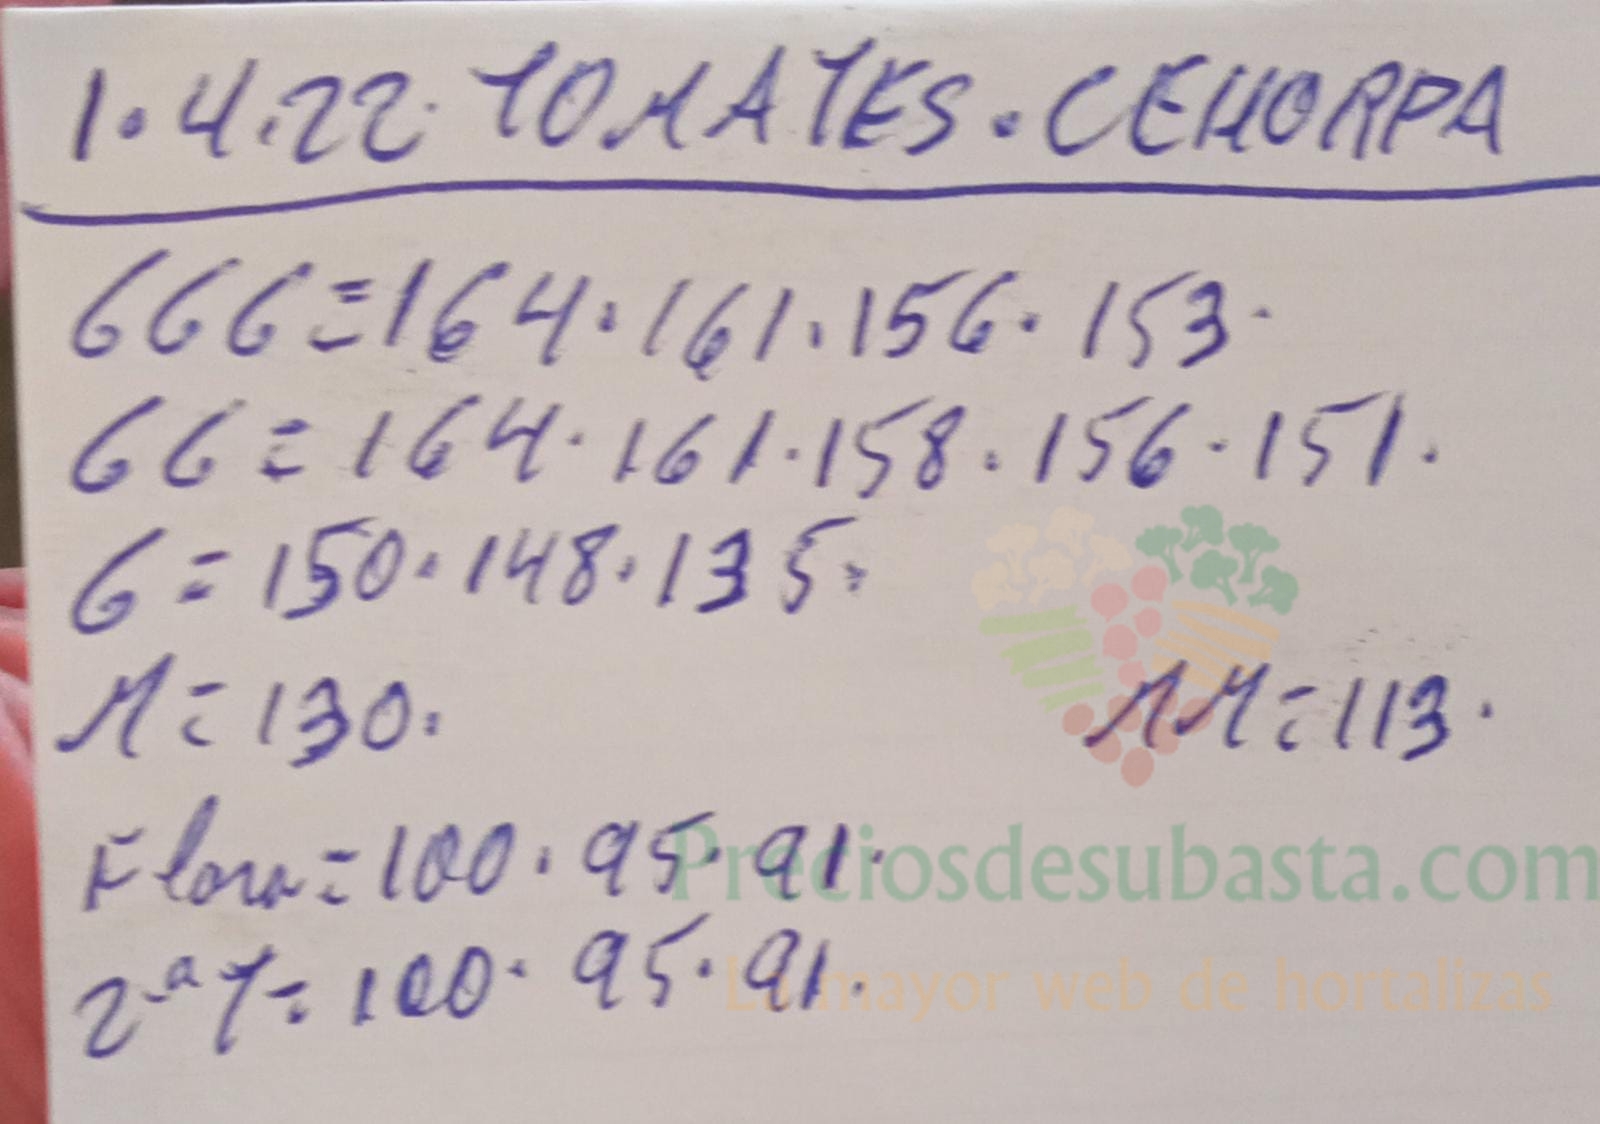 1.4.22. TOMATES. CEHORPA
GGG=164.161.156.153.
GG=164.161.158.156.151.
G=150.148.135.
M=130. MM=113.
Flow=100.95.91.
2ªT=100.95.91.
Preciosdesubasta.com
La mayor web de hortalizas